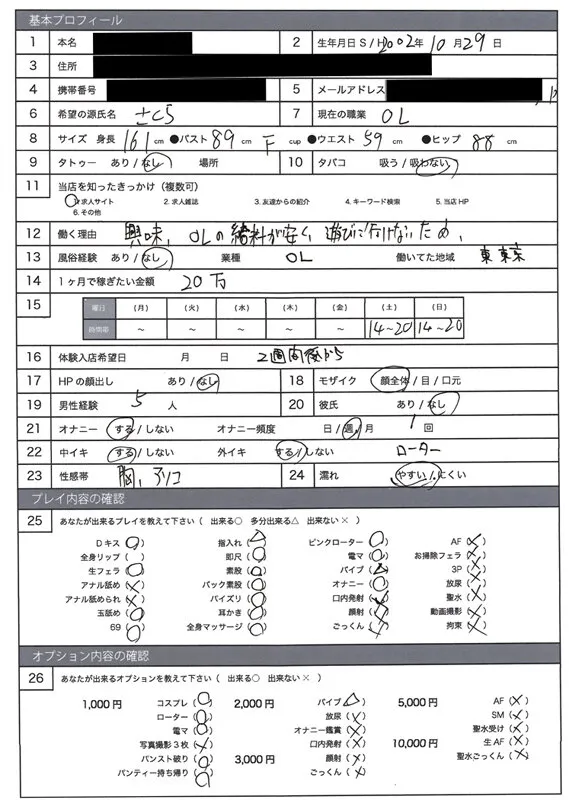 基本プロフィール
1 本名 2 生年月日 S / H 2002年 10月 29日
3 住所
4 携帯番号 5 メールアドレス
6 希望の源氏名 7 現在の職業 OL
8 サイズ 身長 161 cm ●バスト 89 cm F cup ●ウエスト 59 cm ●ヒップ 88 cm
9 タトゥー あり / なし 場所 10 タバコ 吸う / 吸わない
11 当店を知ったきっかけ（複数可）
1.求人サイト 2.求人雑誌 3.友達からの紹介 4.キーワード検索 5.当店HP
6.その他
12 働く理由 興味、OLの給料が安く、遊びに行けないため、
13 風俗経験 あり / なし 業種 OL 働いてた地域 東京
14 1ヶ月で稼ぎたい金額 20万
15 曜日 （月） （火） （水） （木） （金） （土） （日）
時間帯 ～ ～ ～ ～ ～ 14～20 14～20
16 体験入店希望日 月 日 2週間後から
17 HPの顔出し あり / なし 18 モザイク 顔全体 / 目 / 口元
19 男性経験 5人 20 彼氏 あり / なし
21 オナニー する / しない オナニー頻度 日 / 週 / 月 1回
22 中イキ する / しない 外イキ する / しない ローター
23 性感帯 胸、 24 濡れ やすい / にくい
プレイ内容の確認
25 あなたが出来るプレイを教えて下さい（ 出来る○ 多分出来る△ 出来ない× ）
Dキス（○） 指入れ（△） ピンクローター（○） AF（×）
全身リップ（ ） 即尺（○） 電マ（○） お掃除フェラ（×）
生フェラ（○） 素股（○） バイブ（△） 3P（×）
アナル舐め（×） バック素股（○） オナニー（○） 放尿（×）
アナル舐められ（×） パイズリ（○） 口内発射（×） 聖水（×）
玉舐め（○） 耳かき（○） 顔射（×） 動画撮影（×）
69（○） 全身マッサージ（○） ごっくん（×） 拘束（×）
オプション内容の確認
26 あなたが出来るオプションを教えて下さい（ 出来る○ 出来ない× ）
1,000円 コスプレ（○） 2,000円 バイブ（△） 5,000円 AF（×）
ローター（○） 放尿（×） SM（×）
電マ（○） オナニー鑑賞（×） 聖水受け（×）
写真撮影3枚（×） 口内発射（×） 10,000円 生AF（×）
パンスト破り（○） 3,000円 顔射（×） 聖水ごっくん（×）
パンティー持ち帰り（○） ごっくん（×）